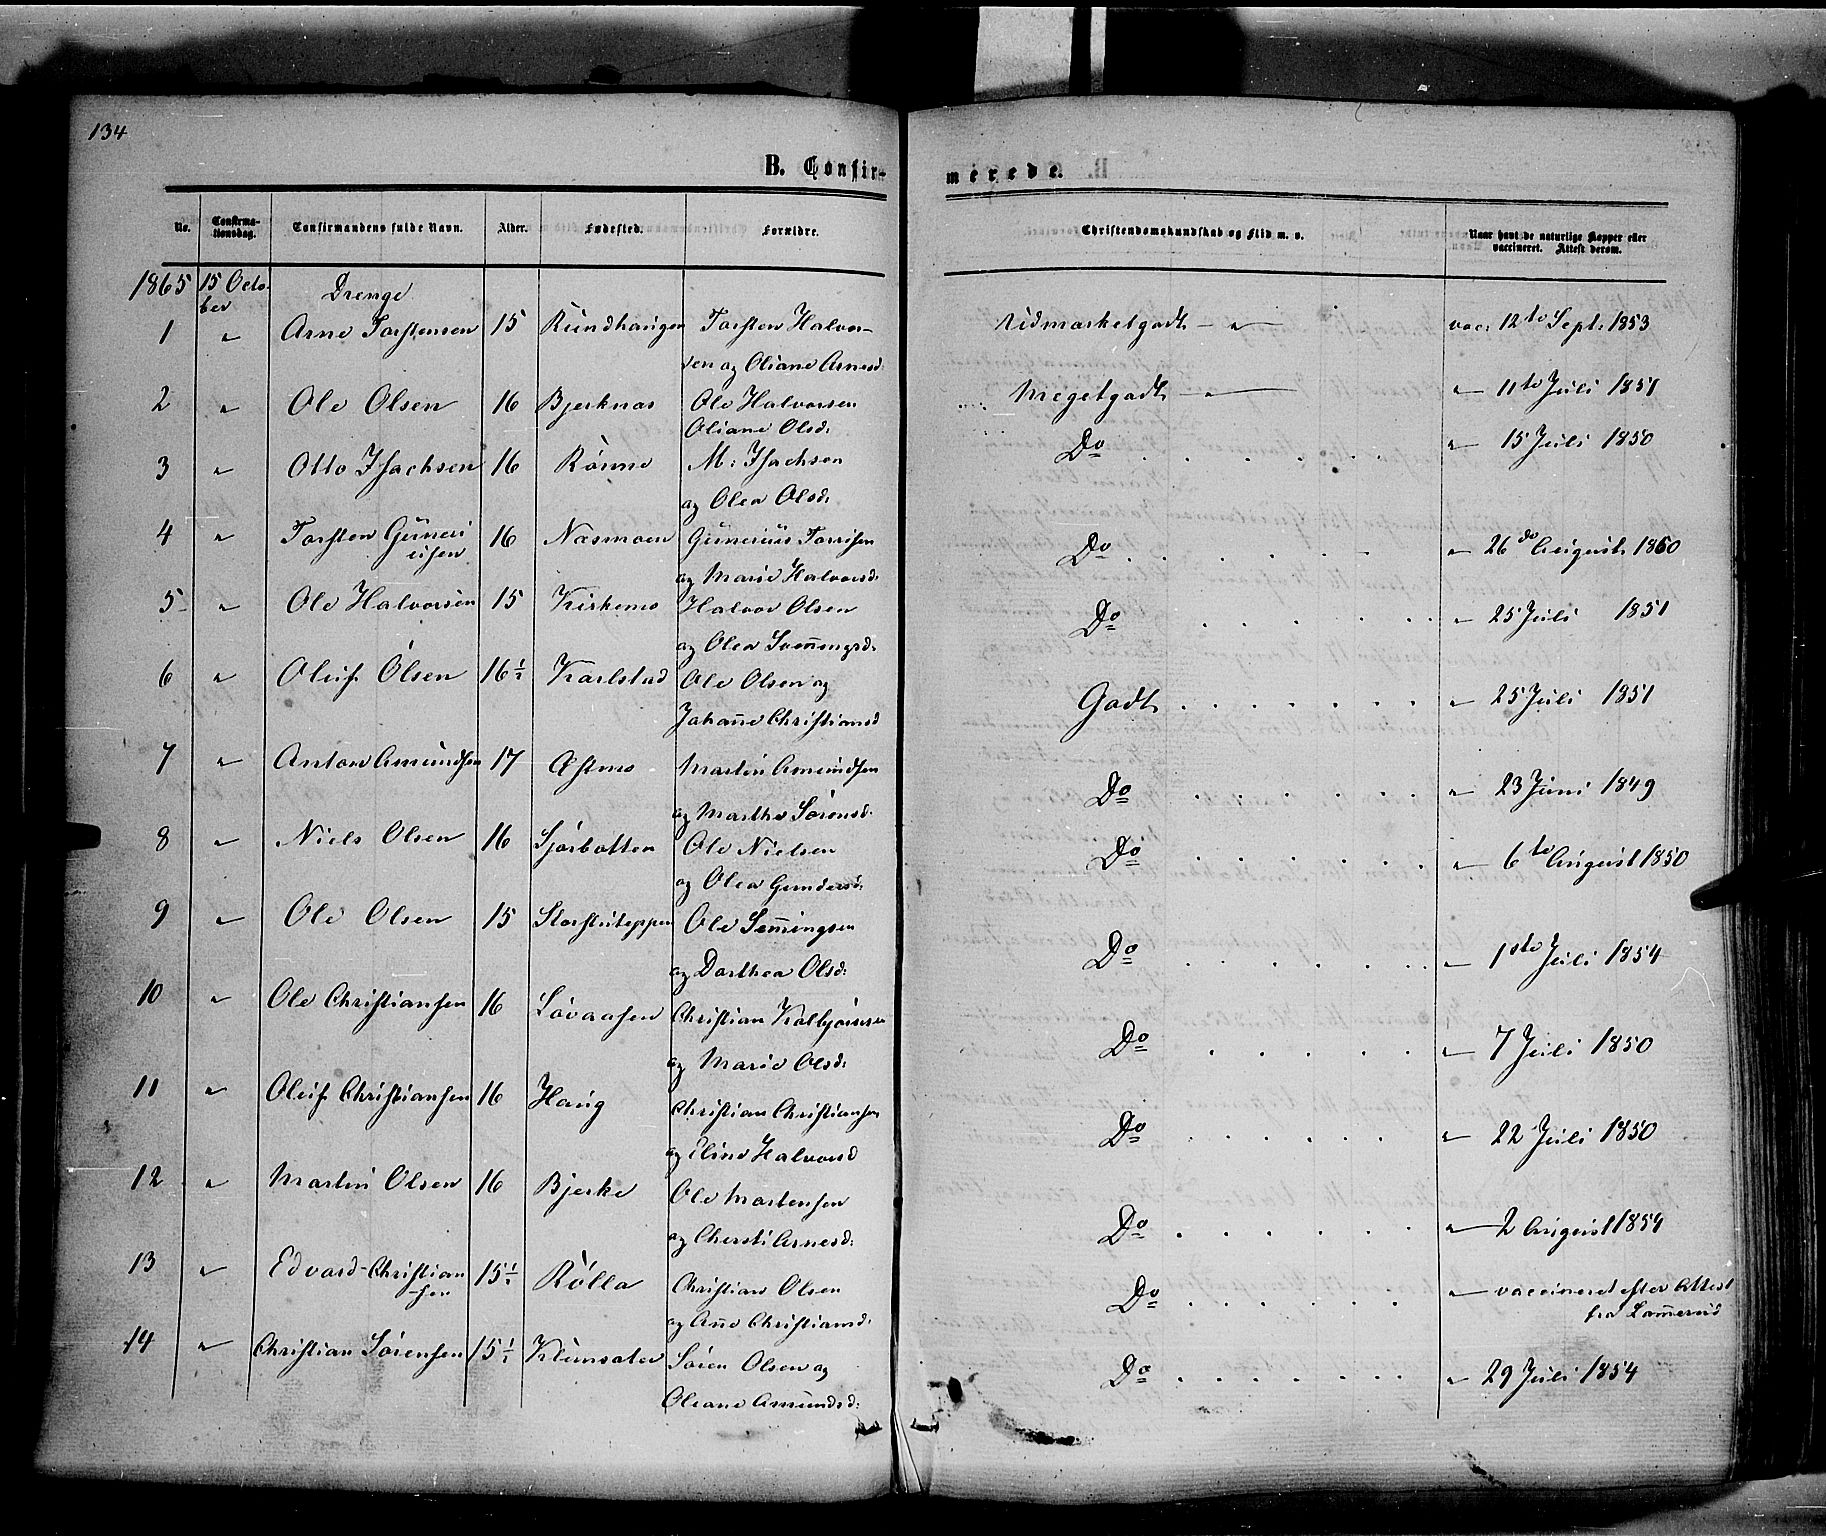 134
B. Confir-
merede.
No. Confirma-tionsdag. Confirmandens fulde Navn. Alder. Fødested. Forældre. Christendomskundskab og Flid m. v. Naar havt de naturlige Kopper eller vaccineret. Attest derom.
1865 15 Octo-
ber Drenge
1 " Arne Torstensen 15 Rundhaugen Torsten Halvor- Udmærketgodt — " — vac: 12te Sept: 1853
sen og Oliane Arnesd:
2 " Ole Olsen 16 Bjerknæs Ole Halvorsen Megetgodt — " — " 11te Juli 1851
Oliane Olsd:
3 " Otto Isachsen 16 Rønne M: Isachsen Do " 15 Juli 1850
og Olea Olsd:
4 " Torsten Guneri 16 Næsmoen Gunerius Torrisen Do " 26de August 1860
usen
og Marie Halvorsd:
5 " Ole Halvorsen 15 Kirkemo Halvor Olsen Do " 25 Juli 1851
og Olea Svenningsd:
6 " Oluf Olsen 16½ Karlstad Ole Olsen og Godt " 25 Juli 1851
Johanne Christiansd
7 " Anton Amundsen 17 Æstmo Martin Amundsen Do " 23 Juni 1849
og Marthe Sørensd:
8 " Niels Olsen 16 Sjørbotten Ole Nielsen Do " 6te August 1850
og Olea Gundersd:
9 " Ole Olsen 15 Storstuteppen Ole Semingsen Do " 1ste Juli 1854
og Dorthea Olsd:
10 " Ole Christiansen 16 Løvaasen Christian Kolbjørnsen Do " 7 Juli 1850
og Marie Olsd:
11 " Oluf Christiansen 16 Haug Christian Christiansen Do " 22 Juli 1850
og Eline Halvorsd
12 " Martin Olsen 16 Bjerke Ole Mortensen Do " 2 August 1854
og Chersti Arnesd:
13 " Edvard Christian 15½ Rølla Christian Olsen Do " vaccineret efter Attest
-sen
fra Lommerud
og Ane Christiansd:
14 " Christian Sørensen 15½ Klemsæter Søren Olsen og Do " 29 Juli 1854
Oleane Amundsd: